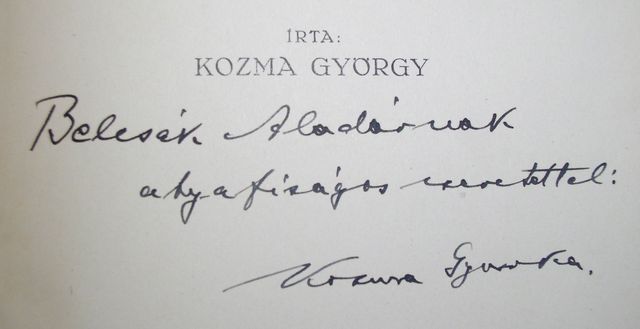 ÍRTA:
KOZMA GYÖRGY
Belcsák Aladárnak
atyafiságos szeretettel:
Kozma Gyurka.